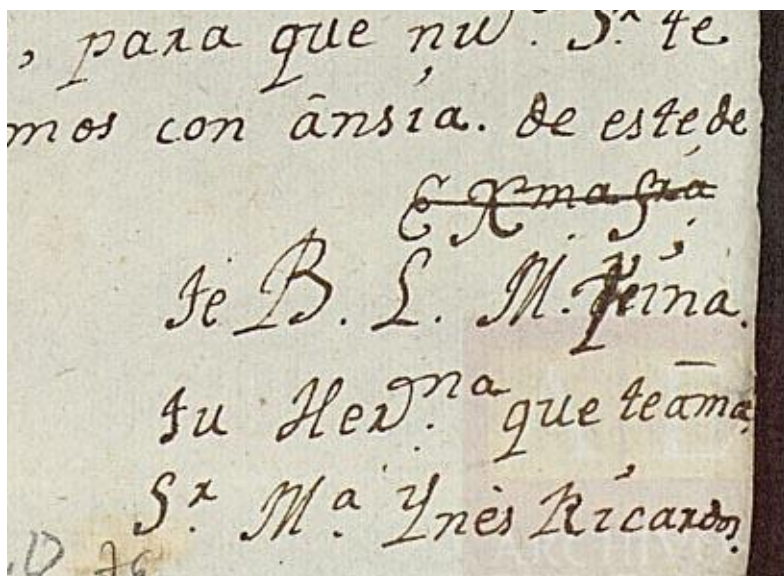 , para que nro. Sr. te
mos con ânsia. de este de
Exma Sra
te B. L. M. fina.
tu Herna. que teāma,
Sr. Ma. Ynès Ricardos.
ARCHIVO